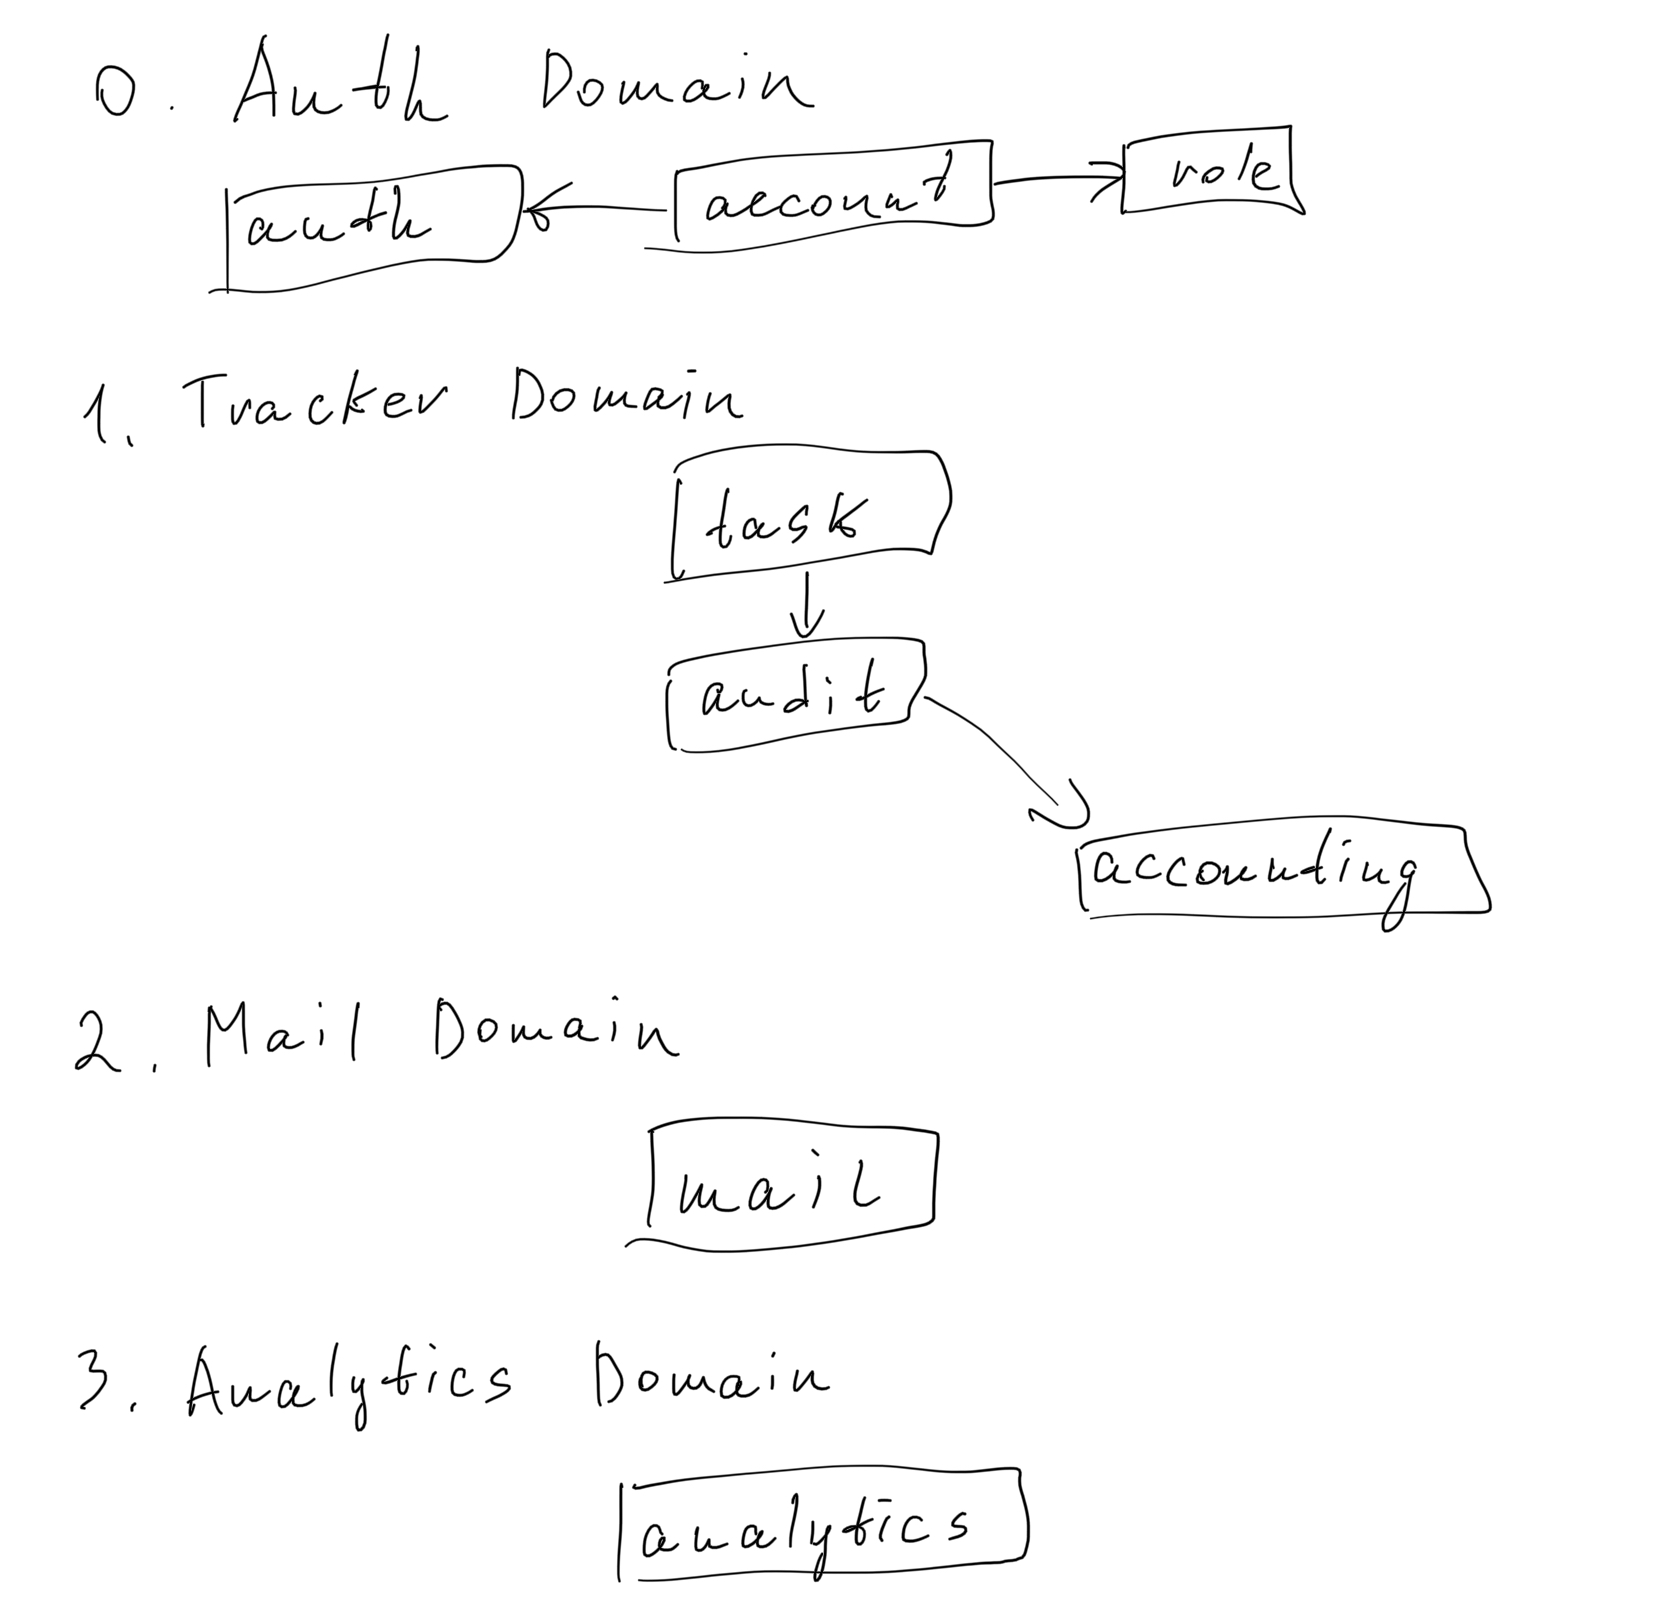 0. Auth Domain
auth account role
1. Tracker Domain
task
audit
accounting
2. Mail Domain
mail
3. Analytics Domain
analytics